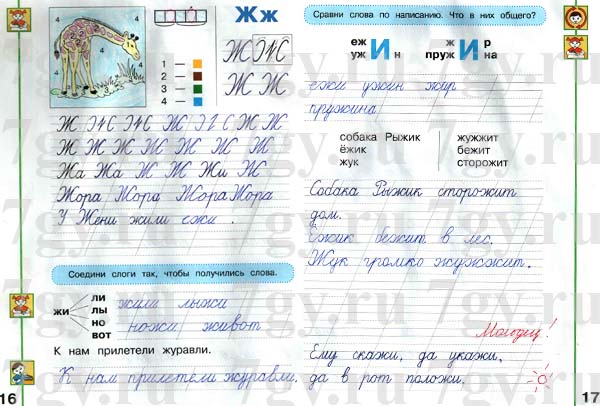 Ж ж
1 —
2 —
3 —
4 —
4
4
4
Ж Ж
Ж Ж
Ж Ж Ж Ж Ж Ж Ж Ж
Ж Ж Ж Ж Ж Ж Ж Ж
Жа Жа Ж Ж Жи Ж
Жора Жора Жора Жора
У Жени жили ежи.
Соедини слоги так, чтобы получились слова.
жи
ли
лы
но
вот
жили лыжи
ножи живот
К нам прилетели журавли.
К нам прилетели журавли.
16
Сравни слова по написанию. Что в них общего?
еж И
уж И н
ж И р
пруж И на
ежи ужин жир
пружина
собака Рыжик жужжит
ёжик бежит
жук сторожит
Собака Рыжик сторожит
дом.
Ёжик бежит в лес.
Жук громко жужжит.
Молодец!
Ему скажи, да укажи,
да в рот положи.
17
7gy.ru